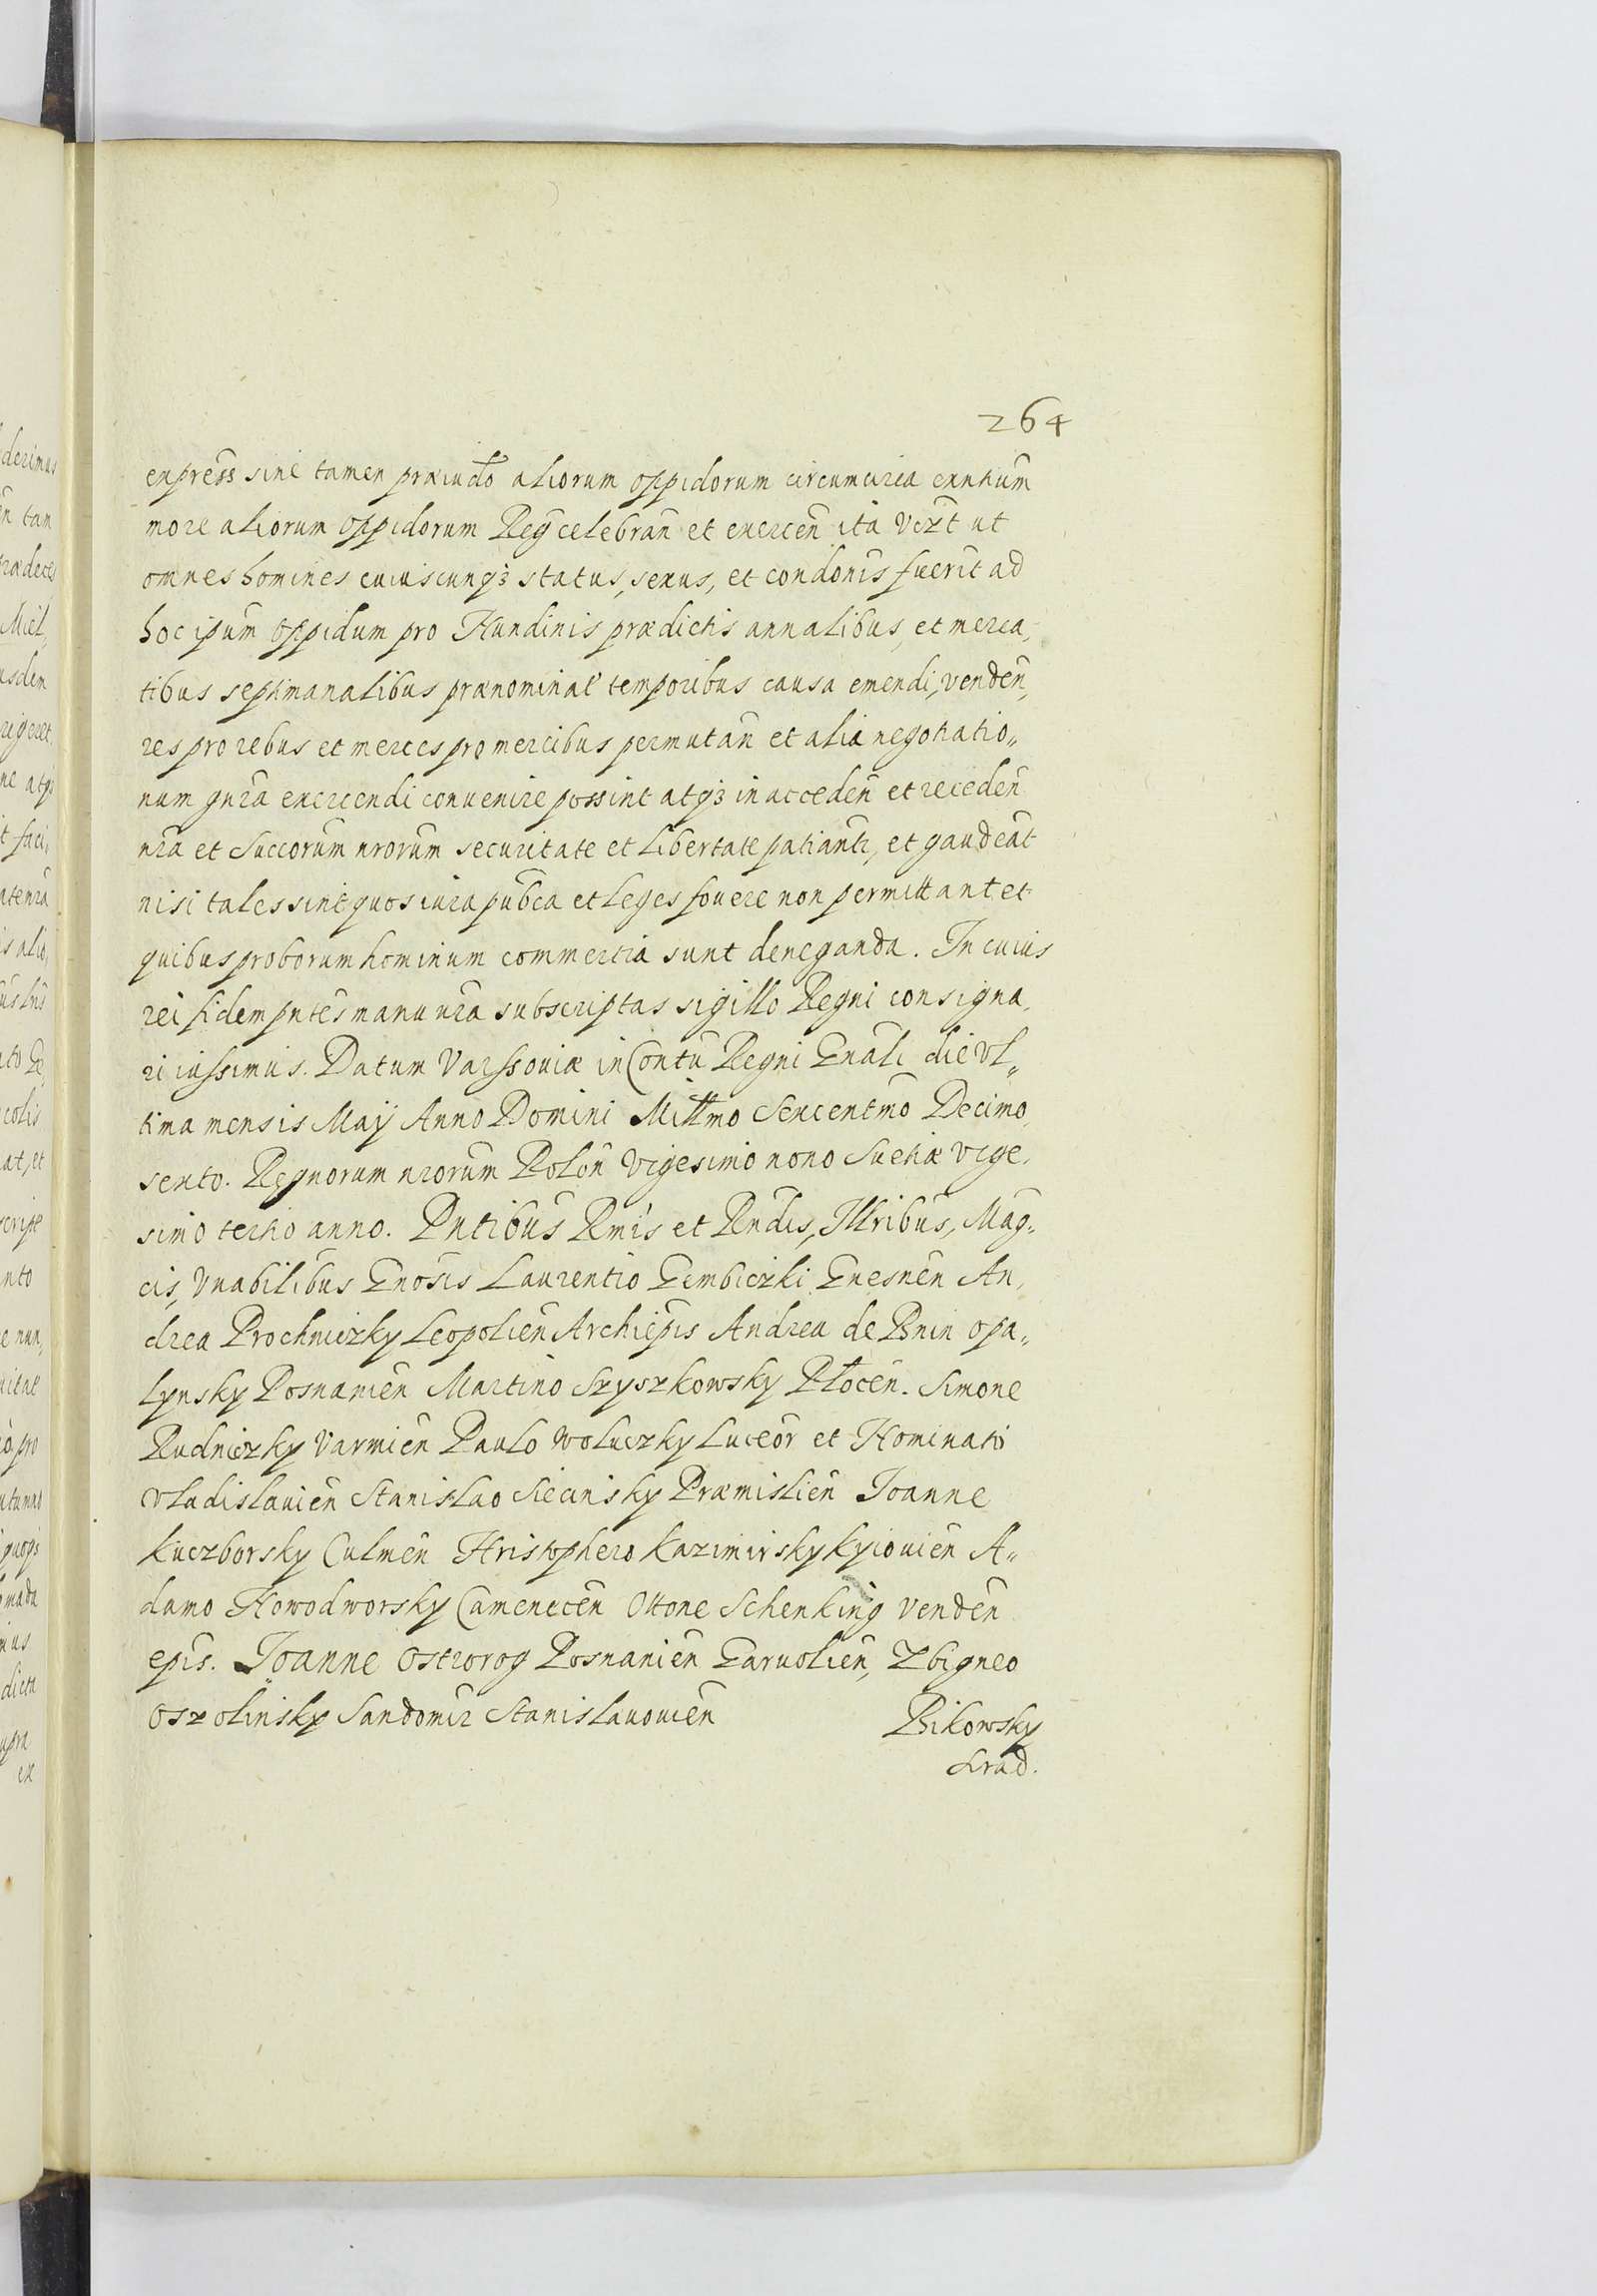 264
express sine tamen præiudo aliorum oppidorum circumcirca exntium
more aliorum oppidorum Reg celebran et exercen ita vezt ut
omnes homines cuiuscunq3 status, sexus, et condonis fuerit ad
hoc ipum oppidum pro Nundinis prædictis annalibus, et merca,
tibus septimanalibus prænominat temporibus causa emendi, venden,
res pro rebus et merces pro mercibus permutan et alia negotiatio„
num gnra exercendi convenire possint atq3 in acceden et receden
nra et Succorum nrorum securitate et libertate patiantr, et gaudeat
nisi tales sint quos iura pubca et leges fovere non permittant et
quibus proborum hominum commertia sunt deneganda. In cuius
rei fidem pntes manu nra subscriptas sigillo Regni consigna,
ri iussimus. Datum Varssoviæ in Contu Regni Gnali die vl„
tima mensis Maÿ Anno Domini Millmo Sexcentmo Decimo,
sexto. Regnorum nrorum Polon vigesimo nono Suetiæ vige,
simo tertio anno. Pntibus Rmis et Rndis, Illribus, Mag,
cis, Vnabilibus Gnosis Laurentio Gembiczki Gnesnen An,
drea Prochniczky Leopolien Archiepis Andrea de Bnin opa„
lynsky Posnanien Martino Szyszkowsky Plocen. Simone
Rudniczky Varmien Paulo Woluczky Luceor et Nominato
Vladislavien Stanislao Siecinsky Præmislien Joanne
Kuczborsky Culmen Hristophero Kazimirsky Kyiovien A„
damo Nowodworsky Camenecen Ottone Schenking Venden
epis. Joanne Ostrorog Posnanien Garvolien, Zbigneo
Oszolinsky Sandomir Stanislavovien
Bikowsky
Srad.